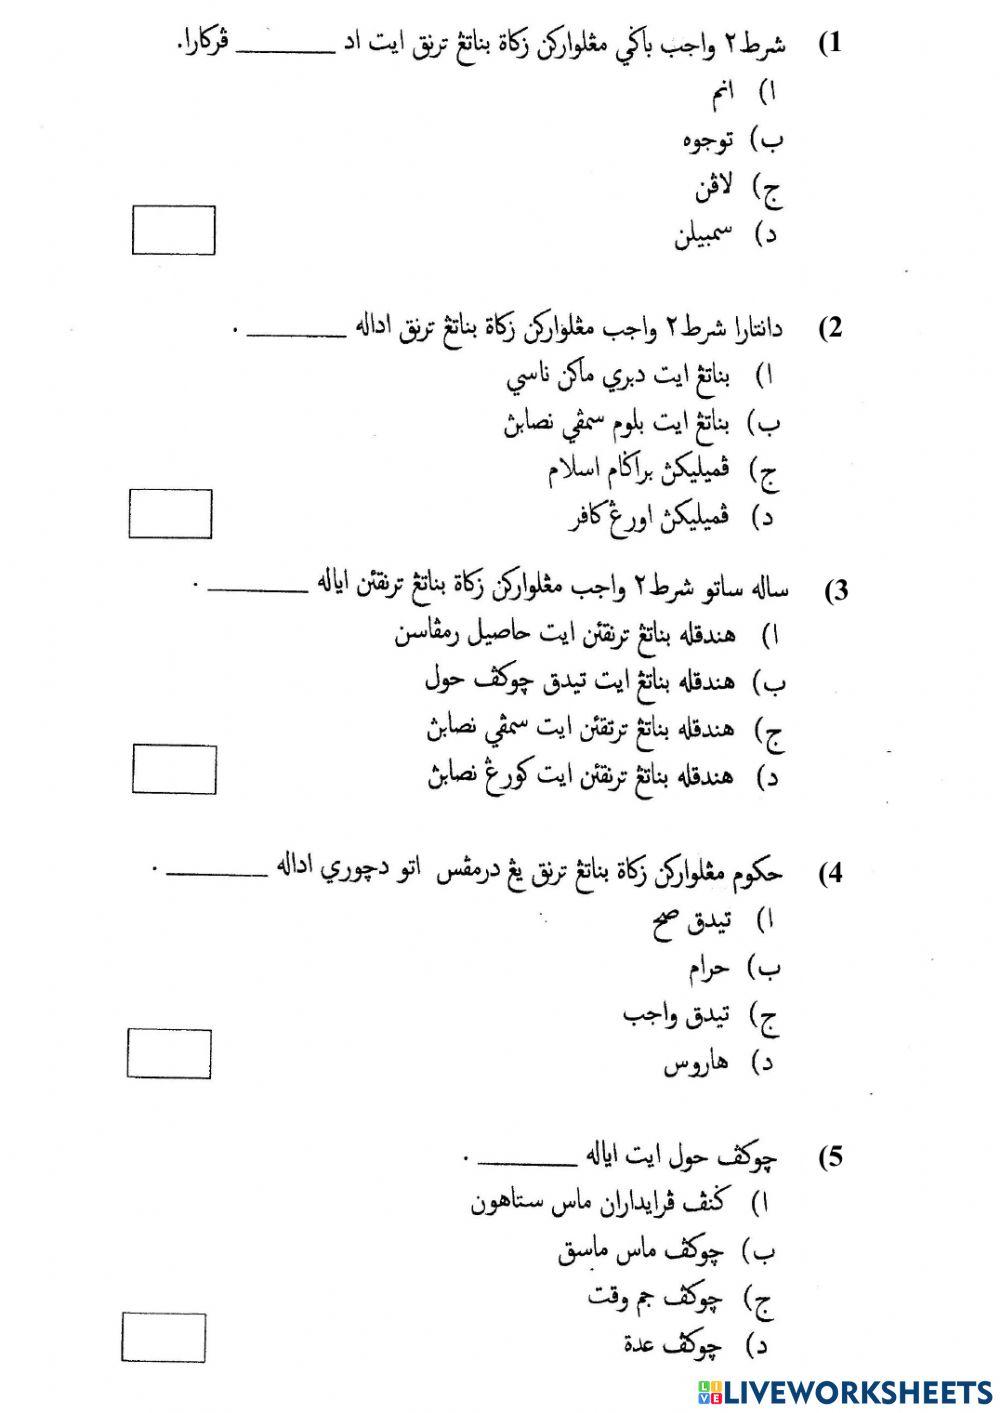 (1 شرط٢ واجب باݢي مڠلوارکن زکاة بناتڠ ترنق ايت اد ________ ڤرکارا.
ا) انم
ب) توجوه
ج) لاڤن
د) سمبيلن
(2 دانتارا شرط٢ واجب مڠلوارکن زکاة بناتڠ ترنق اداله ________ .
ا) بناتڠ ايت دبري ماکن ناسي
ب) بناتڠ ايت بلوم سمڤي نصابڽ
ج) ڤميليکڽ براݢام اسلام
د) ڤميليکڽ اورڠ کافر
(3 ساله ساتو شرط٢ واجب مڠلوارکن زکاة بناتڠ ترنقئن اياله ________ .
ا) هندقله بناتڠ ترنقئن ايت حاصيل رمڤاسن
ب) هندقله بناتڠ ايت تيدق چوکڤ حول
ج) هندقله بناتڠ ترنقئن ايت سمڤي نصابڽ
د) هندقله بناتڠ ترنقئن ايت کورڠ نصابڽ
(4 حکوم مڠلوارکن زکاة بناتڠ ترنق يڠ درمڤس اتو دچوري اداله ________ .
ا) تيدق صح
ب) حرام
ج) تيدق واجب
د) هاروس
(5 چوکڤ حول ايت اياله ________ .
ا) ݢنڤ ڤرايداران ماس ستاهون
ب) چوکڤ ماس ماسق
ج) چوکڤ جم وقت
د) چوکڤ عدة
LIVEWORKSHEETS